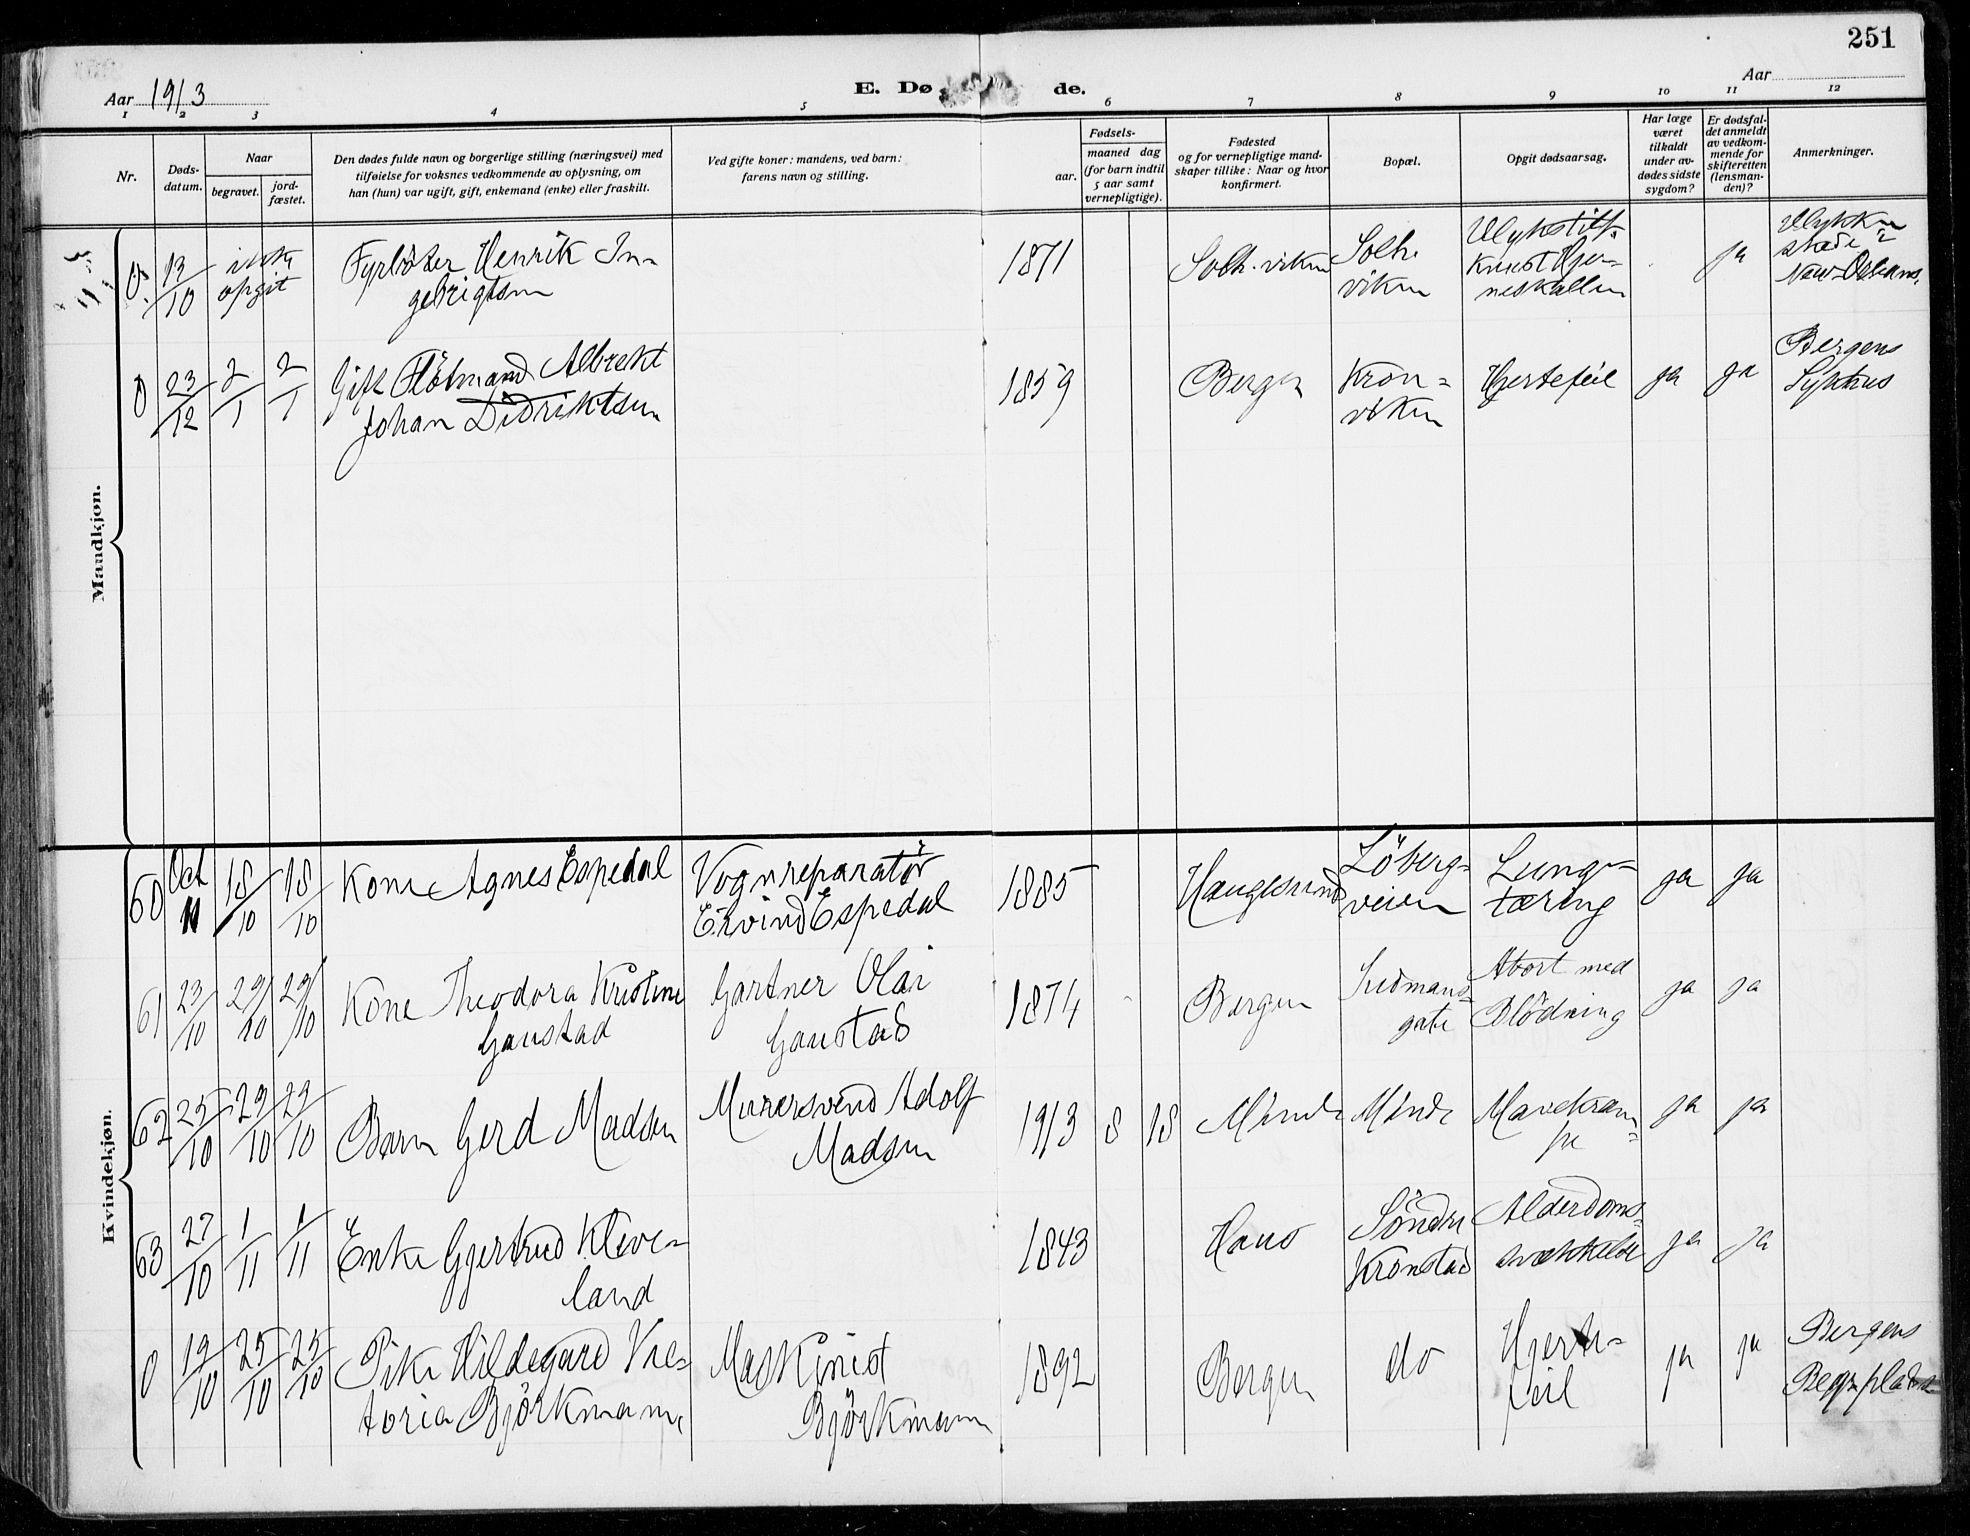 251
Aar 1913
E. Dø de.
Aar
1 2 3 4 5 6 7 8 9 10 11 12
Nr.
Døds-
datum.
Naar
begravet.
jord-
fæstet.
Den dødes fulde navn og borgerlige stilling (næringsvei) med
tilføielse for voksnes vedkommende av oplysning, om
han (hun) var ugift, gift, enkemand (enke) eller fraskilt.
Ved gifte koner: mandens, ved barn:
farens navn og stilling.
Fødsels-
aar.
maaned dag
(for barn indtil
5 aar samt
vernepligtige).
Fødested
og for vernepligtige mand-
skaper tillike: Naar og hvor
konfirmert.
Bopæl.
Opgit dødsaarsag.
Har læge
været
tilkaldt
under av-
dødes sidste
sygdom?
Er dødsfal-
det anmeldt
av vedkom-
mende for
skifteretten
(lensman-
den)?
Anmerkninger.
Mandkjøn.
0 13/10 ikke
opgit
Fyrbøter Henrik In-
gebrigtsen
1871
Solh. viken
Solh.
viken
Ulykstilf.
Knust Hjer-
neskallen
ja
Ulykken
skede i
New-Orleans.
0 23/12 2/1 2/1
Gift Flötmand Albrekt
Johan Didriktsen
1859
Bergen
Kron-
viken
Hjertefeil
ja ja
Bergens
Sykhus
Kvindekjøn.
60 Oct
11 18/10 18/10
Kone Agnes Espedal
Vognreparatör
Eivind Espedal
1885
Haugesund
Löberg-
veien
Lunge-
tæring
ja ja
61 23/10 29/10 29/10
Kone Theodora Kristine
Gaustad
Gartner Olai
Gaustad
1874
Bergen
gate
Abort med
Blödning
ja ja
62 25/10 29/10 29/10
Barn Gerd Madsen
Murersvend Adolf
Madsen
1913 8 18
Minde
Minde
Mavekram-
pe
ja ja
63 27/10 1/11 1/11
Enke Gjertrud Kleve-
land
1843
Haus
Söndre
Kronstad
Alderdoms-
svækkelse
ja ja
0 19/10 25/10 25/10
Pike Hildegard Vic-
toria Björkmann
Maskinist
Björkmann
1892
Bergen
do
Hjerte-
feil
ja ja
Bergens